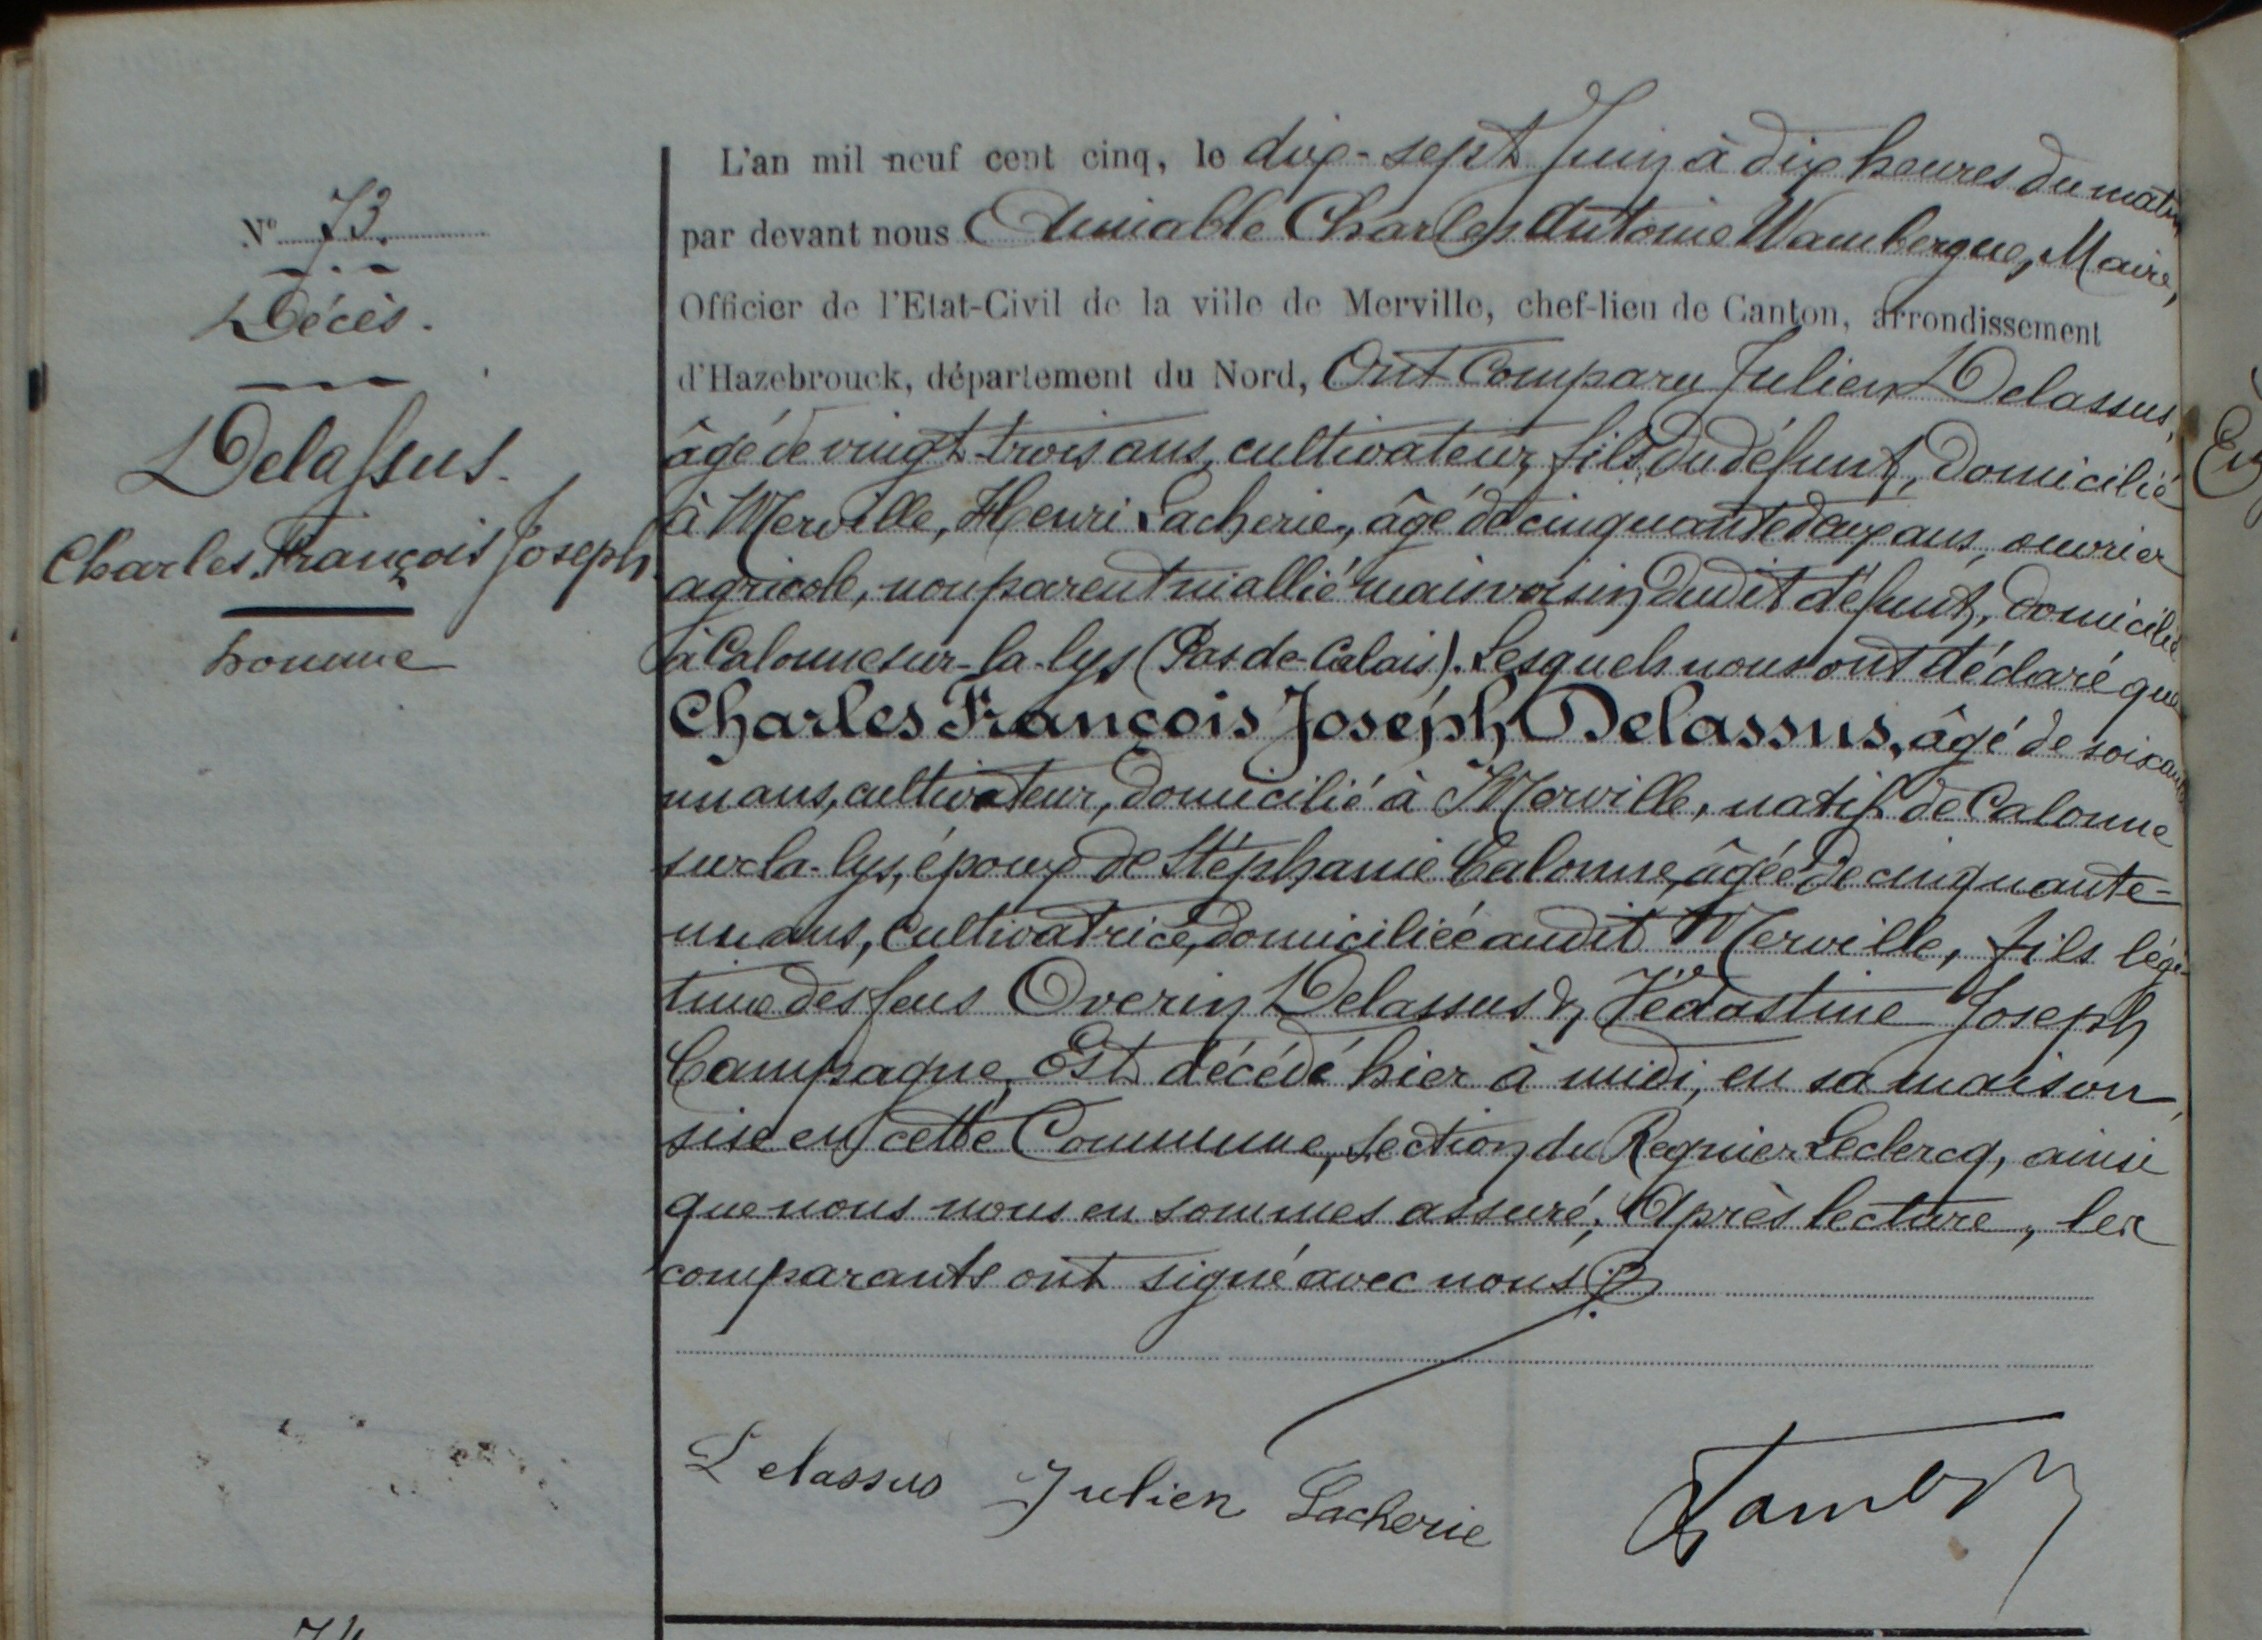 N° 73.
Décès.
Delassus.
Charles François Joseph.
homme
L'an mil neuf cent cinq, le dix-sept Juin à dix heures du matin
par devant nous Aimable Charles Antoine Wambergue, Maire,
Officier de l'Etat-Civil de la ville de Merville, chef-lieu de Canton, arrondissement
d'Hazebrouck, département du Nord, Ont Comparu Julien Delassus,
âgé de vingt-trois ans, cultivateur, fils du défunt, domicilié
à Merville, Henri Lacherie, âgé de cinquante deux ans, ouvrier
agricole, non parent ni allié mais voisin dudit défunt, domicilié
à Calonne sur-la-lys (Pas de-Calais). Lesquels nous ont déclaré que
Charles François Joseph Delassus, âgé de soixante
un ans, cultivateur, domicilié à Merville, natif de Calonne
sur la-lys, époux de Stéphanie Calonne, âgée de cinquante-
un ans, Cultivatrice, domiciliée audit Merville, fils légi-
time des feus Overin Delassus & Védastine Joseph
Campagne, Est décédé hier à midi, en sa maison,
sise en cette Commune, section du Regnier Leclercq, ainsi
que nous nous en sommes assuré; Après lecture, les
comparants ont signé avec nous
Delassus Julien Lacherie
74